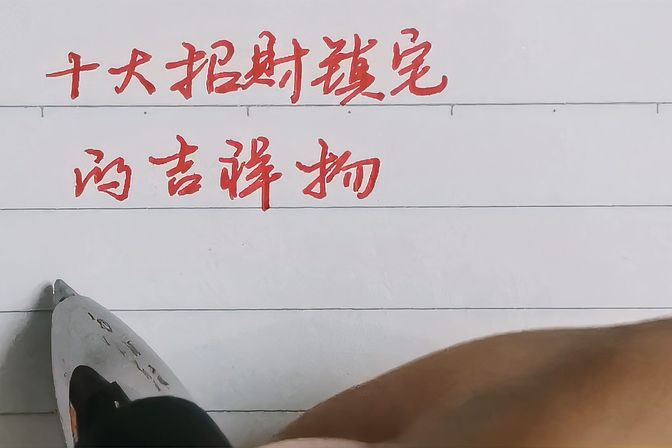 十大招财镇宅
的吉祥物